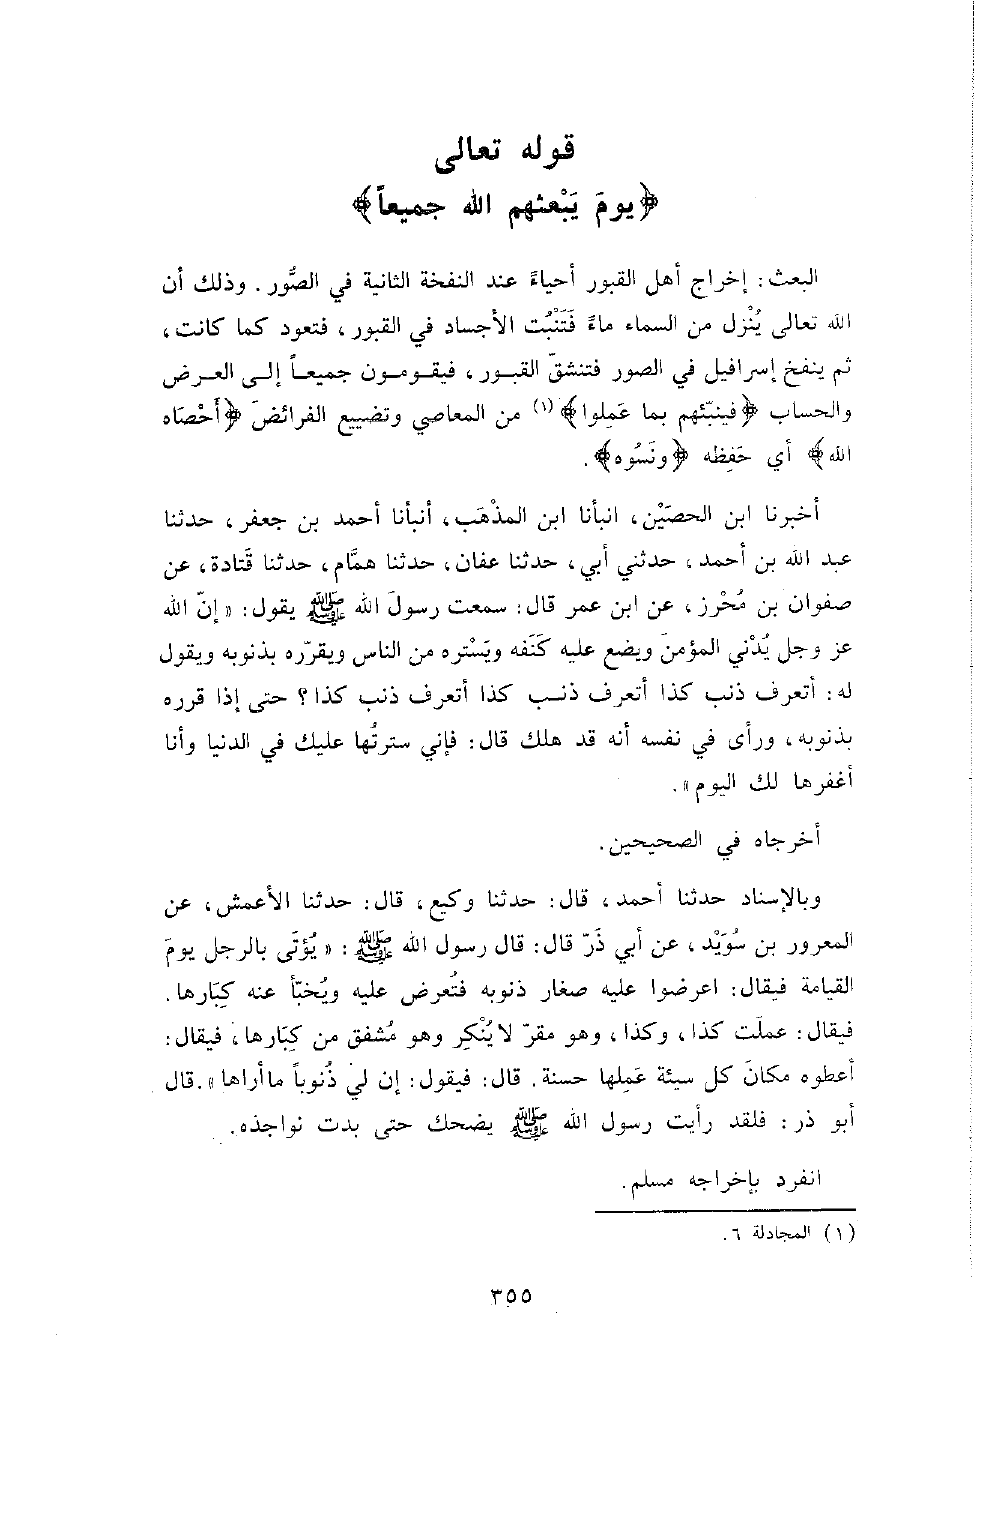 قوله تعالى
﴿يومَ يَبْعثهم الله جميعاً﴾
البعث: إخراج أهل القبور أحياءً عند النفخة الثانية في الصُّور. وذلك أن
الله تعالى يُنْزل من السماء ماءً فَتَنْبُت الأجساد في القبور، فتعود كما كانت،
ثم ينفخ إسرافيل في الصور فتنشقّ القبـور، فيقـومـون جميعـاً إلـى العـرض
والحساب ﴿فينبّئهم بما عَمِلوا﴾(١) من المعاصي وتضييع الفرائضَ ﴿أَحْصَاه
الله﴾ أي حَفِظه ﴿ونَسُوه﴾.
أخبرنا ابن الحصَيْن، انبأنا ابن المذْهَب، أنبأنا أحمد بن جعفر، حدثنا
عبد الله بن أحمد، حدثني أبي، حدثنا عفان، حدثنا همَّام، حدثنا قَتادة، عن
صفوان بن مُحْرز، عن ابن عمر قال: سمعت رسولَ الله ﷺ يقول: «إنّ الله
عز وجل يُدْني المؤمنَ ويضع عليه كَنَفه ويَسْتره من الناس ويقرّره بذنوبه ويقول
له: أتعرف ذنب كذا أتعرف ذنـب كذا أتعرف ذنب كذا؟ حتى إذا قرره
بذنوبه، ورأى في نفسه أنه قد هلك قال: فإني سترتُها عليك في الدنيا وأنا
أغفرها لك اليوم».
أخرجاه في الصحيحين.
وبالإسناد حدثنا أحمد، قال: حدثنا وكيع، قال: حدثنا الأعمش، عن
المعرور بن سُوَيْد، عن أبي ذَرّ قال: قال رسول الله ﷺ: «يُؤتَى بالرجل يومَ
القيامة فيقال: اعرضوا عليه صغار ذنوبه فتُعرض عليه ويُخبَّأ عنه كِبَارها.
فيقال: عملَت كذا، وكذا، وهو مقرّ لا يُنْكِر وهو مُشفق من كِبَارها، فيقال:
أعطوه مكانَ كل سيئة عَمِلها حسنة. قال: فيقول: إن لي ذُنوباً ماأراها». قال
أبو ذر: فلقد رأيت رسول الله ﷺ يضحك حتى بدت نواجذه.
انفرد بإخراجه مسلم.
(١) المجادلة ٦.
٣٥٥